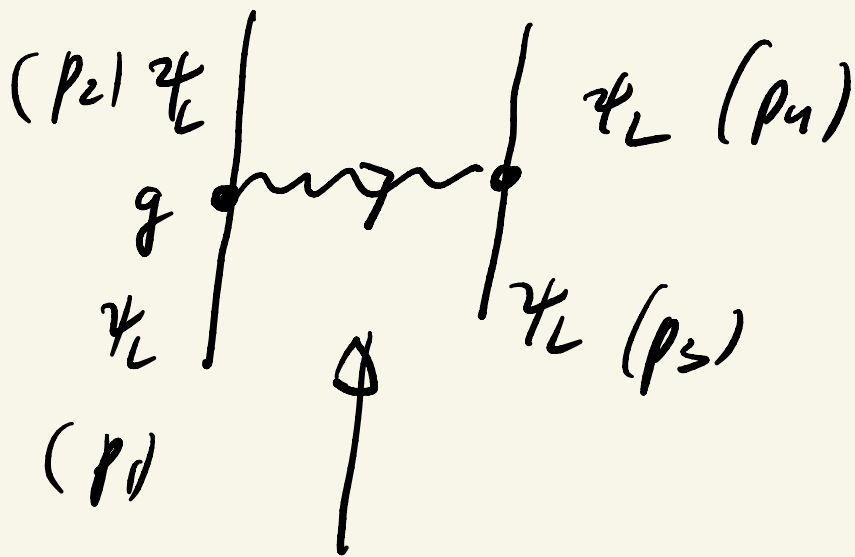 (p₂) ψ_L
ψ_L (p₄)
g
ψ_L
ψ_L (p₃)
(p₁)